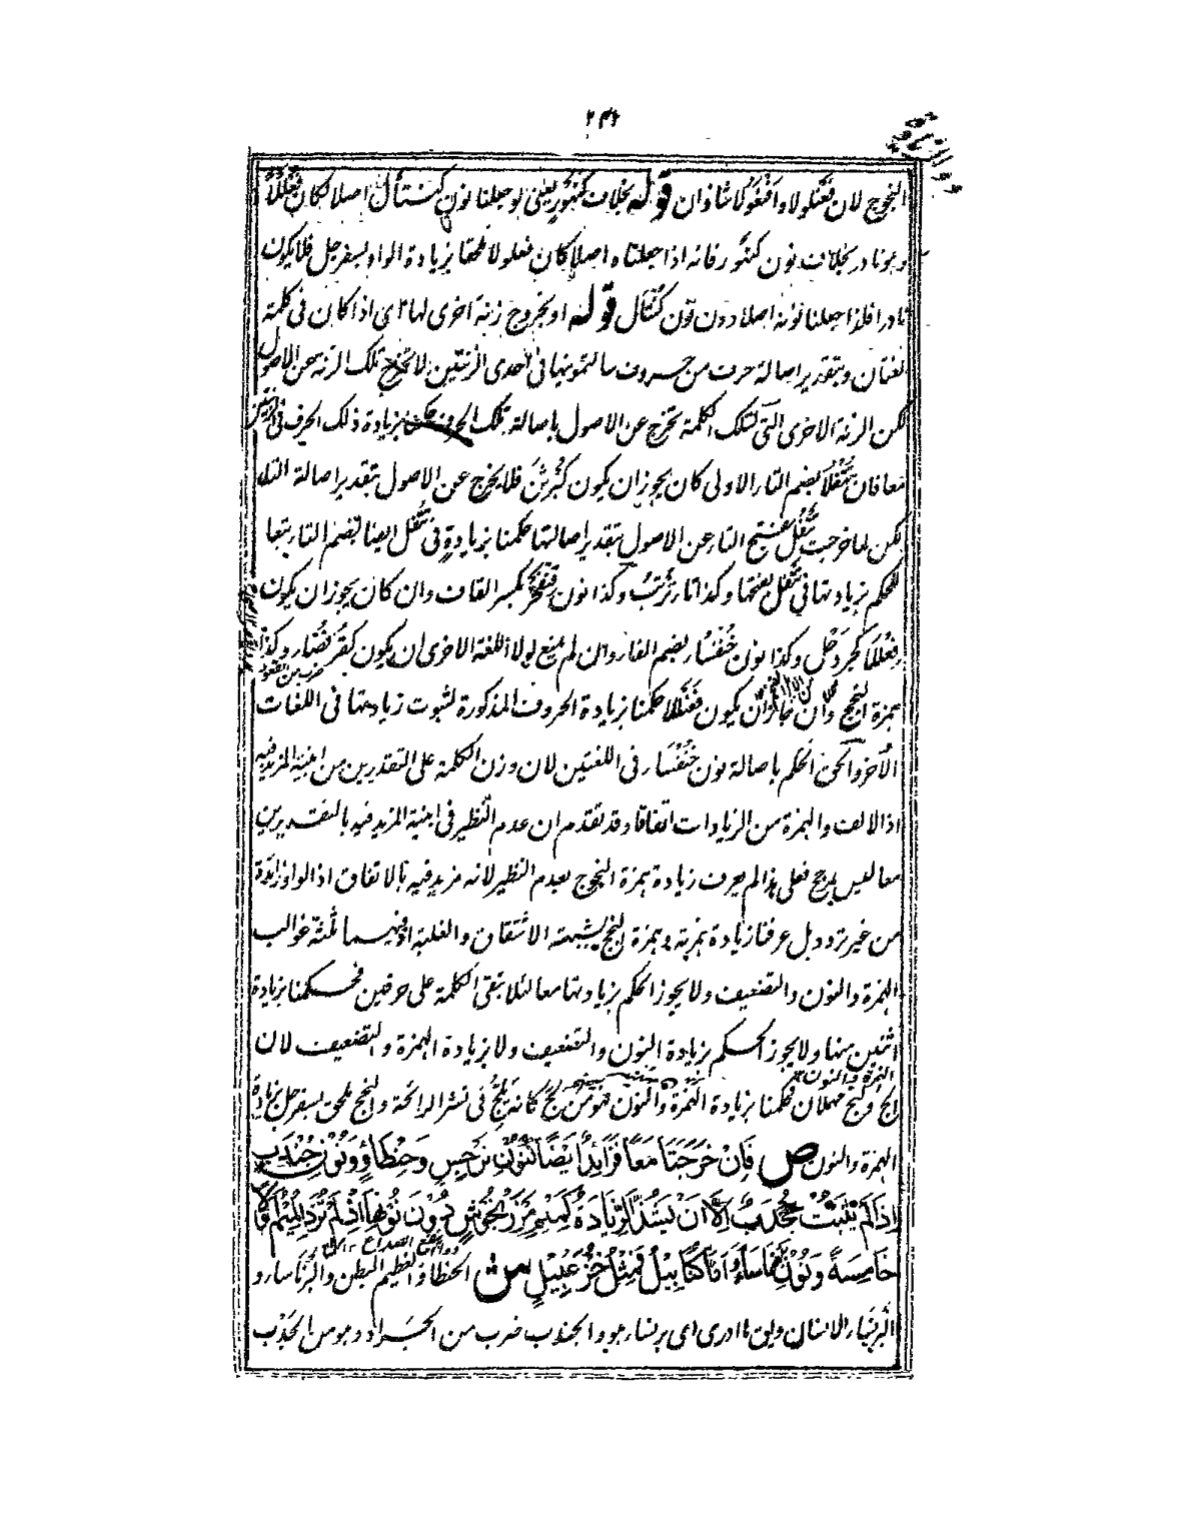 النجوج لان فعنلولا وافنعولا شاذان قوله بخلاف كنهور يعنى لو جعلنا نون كنتأل اصلا لكان فعللا
وهو نادر بخلاف نون كنهور فانه اذا جعلناه اصلا كان فعلولا ملحقا بزيادة الواو بسفرجل فلا يكون
نادرا فلذا جعلنا نونه اصلا دون نون كنتأل قوله او بخروج زنة اخرى لها اى اذا كان فى كلمة
لغتان وبتقدير اصالة حرف من حروف سالتمونيها فى احدى الزنتين لا تخرج تلك الزنة عن الاصول
لكن الزنة الاخرى التى لتلك الكلمة تخرج عن الاصول باصالة تلك الحرف بزيادة ذلك الحرف فى
معا فان تتفلا بضم التاء الاولى كان يجوز ان يكون كبرثن فلا يخرج عن الاصول بتقدير اصالة التاء
لكن لما خرجت تتفل بفتح التاء عن الاصول بتقدير اصالتها حكمنا بزيادة فى تتفل ايضا بضم التاء تبعا
للحكم بزيادتها فى تتفل بفتحها وكذا تاء ترتب وكذا نون قنفخر بكسر القاف وان كان يجوز ان يكون
فعللا كجردحل وكذا نون خنفساء بضم الفاء وان لم يمنع لولا اللغة الاخرى ان يكون كقرفصاء وكذا
همزة النجج وان جاز ان يكون فعنللا حكمنا بزيادة الحروف المذكورة لثبوت زيادتها فى اللغات
الاخر والحق الحكم باصالة نون خنفساء فى اللغتين لان وزن الكلمة على التقديرين من ابنية المزيد فيه
اذ الالف والهمزة من الزيادات اتفاقا وقد تقدم ان عدم النظير فى ابنية المزيد فيه بالتقديرين
معا ليس بمرجح فعلى هذا لم يعرف زيادة همزة النجوج بعدم النظير لانه مزيد فيه بالاتفاق اذ الواو زائدة
من غير تردد بل عرفنا زيادة همزته وهمزة النجج بشبهة الاشتقاق والغلبة اذ فيهما ثلثة غوالب
الهمزة والنون والتضعيف ولا يجوز الحكم بزيادتها معا لئلا تبقى الكلمة على حرفين فحكمنا بزيادة
اثنين منها ولا يجوز الحكم بزيادة النون والتضعيف ولا بزيادة الهمزة والتضعيف لان
الج ونج مهملان فحكمنا بزيادة الهمزة والنون فهو من لج كانه يلج فى نشر الرائحة والنجج ملحق بسفرجل بزيادة
الهمزة والنون ص فَاِنْ خَرَجَتَا مَعًا فَزَائِدٌ اَيْضًا كَنُوْنِ نَرْجِسٍ وَحِنْطَاْوٍ وَنُوْنِ جُنْدَبٍ
اِذَا لَمْ يَثْبُتْ جُخْدَبٌ اِلَّا اَنْ تَشُذَّ الزِّيَادَةُ كَمِيْمِ مَرْزَنْجُوْشٍ دُوْنَ نُوْنِهَا اِذْ لَمْ تُزَدِ الْمِيْمُ اَوَّلًا
خَامِسَةً وَنُوْنِ بَرْنَاسَاءَ وَاَمَّا كُنَابِيْلُ فَمِثْلُ خُزَعْبِيْلٍ ش الحنطاو العظيم البطن والبرناساء و
البرنساء الانسان يقال ما ادرى اى برنساء هو والجندب ضرب من الجراد وهو من الجدب